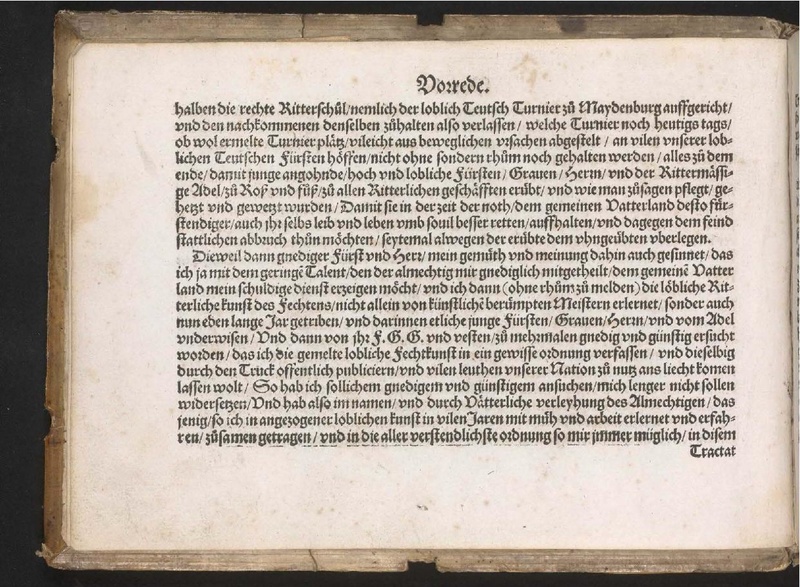 Vorrede.
halben die rechte Ritterschůl/nemlich der loblich Teutsch Turnier zů Maydenburg auffgericht/
vnd den nachkommenen denselben zůhalten also verlassen/ welche Turnier noch heutigs tags/
ob wol ermelte Turnier plätz/vileicht aus beweglichen vrsachen abgestelt / an vilen vnserer lob-
lichen Teutschen Fürsten höffen/nicht ohne sondern rhům noch gehalten werden / alles zů dem
ende/ damit junge angohnde/hoch vnd lobliche Fürsten/ Grauen / Herrn/ vnd der Rittermässi-
ge Adel/zů Roß vnd fůß/zů allen Ritterlichen geschäfften erübt/ vnd wie man zůsagen pflegt/ ge-
hetzt vnd gewetzt wurden / Damit sie in der zeit der noth/dem gemeinen Vatterland desto für-
stendiger/auch jhr selbs leib vnd leben vmb souil besser retten/auffhalten/vnd dagegen dem feind
stattlichen abbruch thůn möchten/ seytemal alwegen der erübte dem vhngeübten vberlegen.
Dieweil dann gnediger Fürst vnd Herr/ mein gemüth vnd meinung dahin auch gesinnet/ das
ich ja mit dem geringē Talent/den der almechtig mir gnediglich mitgetheilt/dem gemeinē Vatter
land mein schuldige dienst erzeigen möcht/ vnd ich dann (ohne rhům zů melden) die löbliche Rit-
terliche kunst des Fechtens/nicht allein von künstlichē berümpten Meistern erlernet/ sonder auch
nun eben lange Jar getriben/ vnd darinnen etliche junge Fürsten/ Grauen/ Herrn/ vnd vom Adel
vnderwisen / Vnd dann von jhr F. G. G. vnd vesten/ zů mehrmalen gnedig vnd günstig ersucht
worden/ das ich die gemelte lobliche Fechtkunst in ein gewisse ordnung verfassen / vnd dieselbig
durch den Truck offentlich publiciern/ vnd vilen leuthen vnserer Nation zů nutz ans liecht komen
lassen wolt/ So hab ich sollichem gnedigem vnd günstigem ansuchen/mich lenger nicht sollen
widersetzen/Vnd hab also im namen/ vnd durch Vätterliche verleyhung des Almechtigen / das
jenig/ so ich in angezogener loblichen kunst in vilen Jaren mit müh vnd arbeit erlernet vnd erfah-
ren/ zůsamen getragen / vnd in die aller verstendlichste ordnung so mir jmmer müglich/ in disem
Tractat